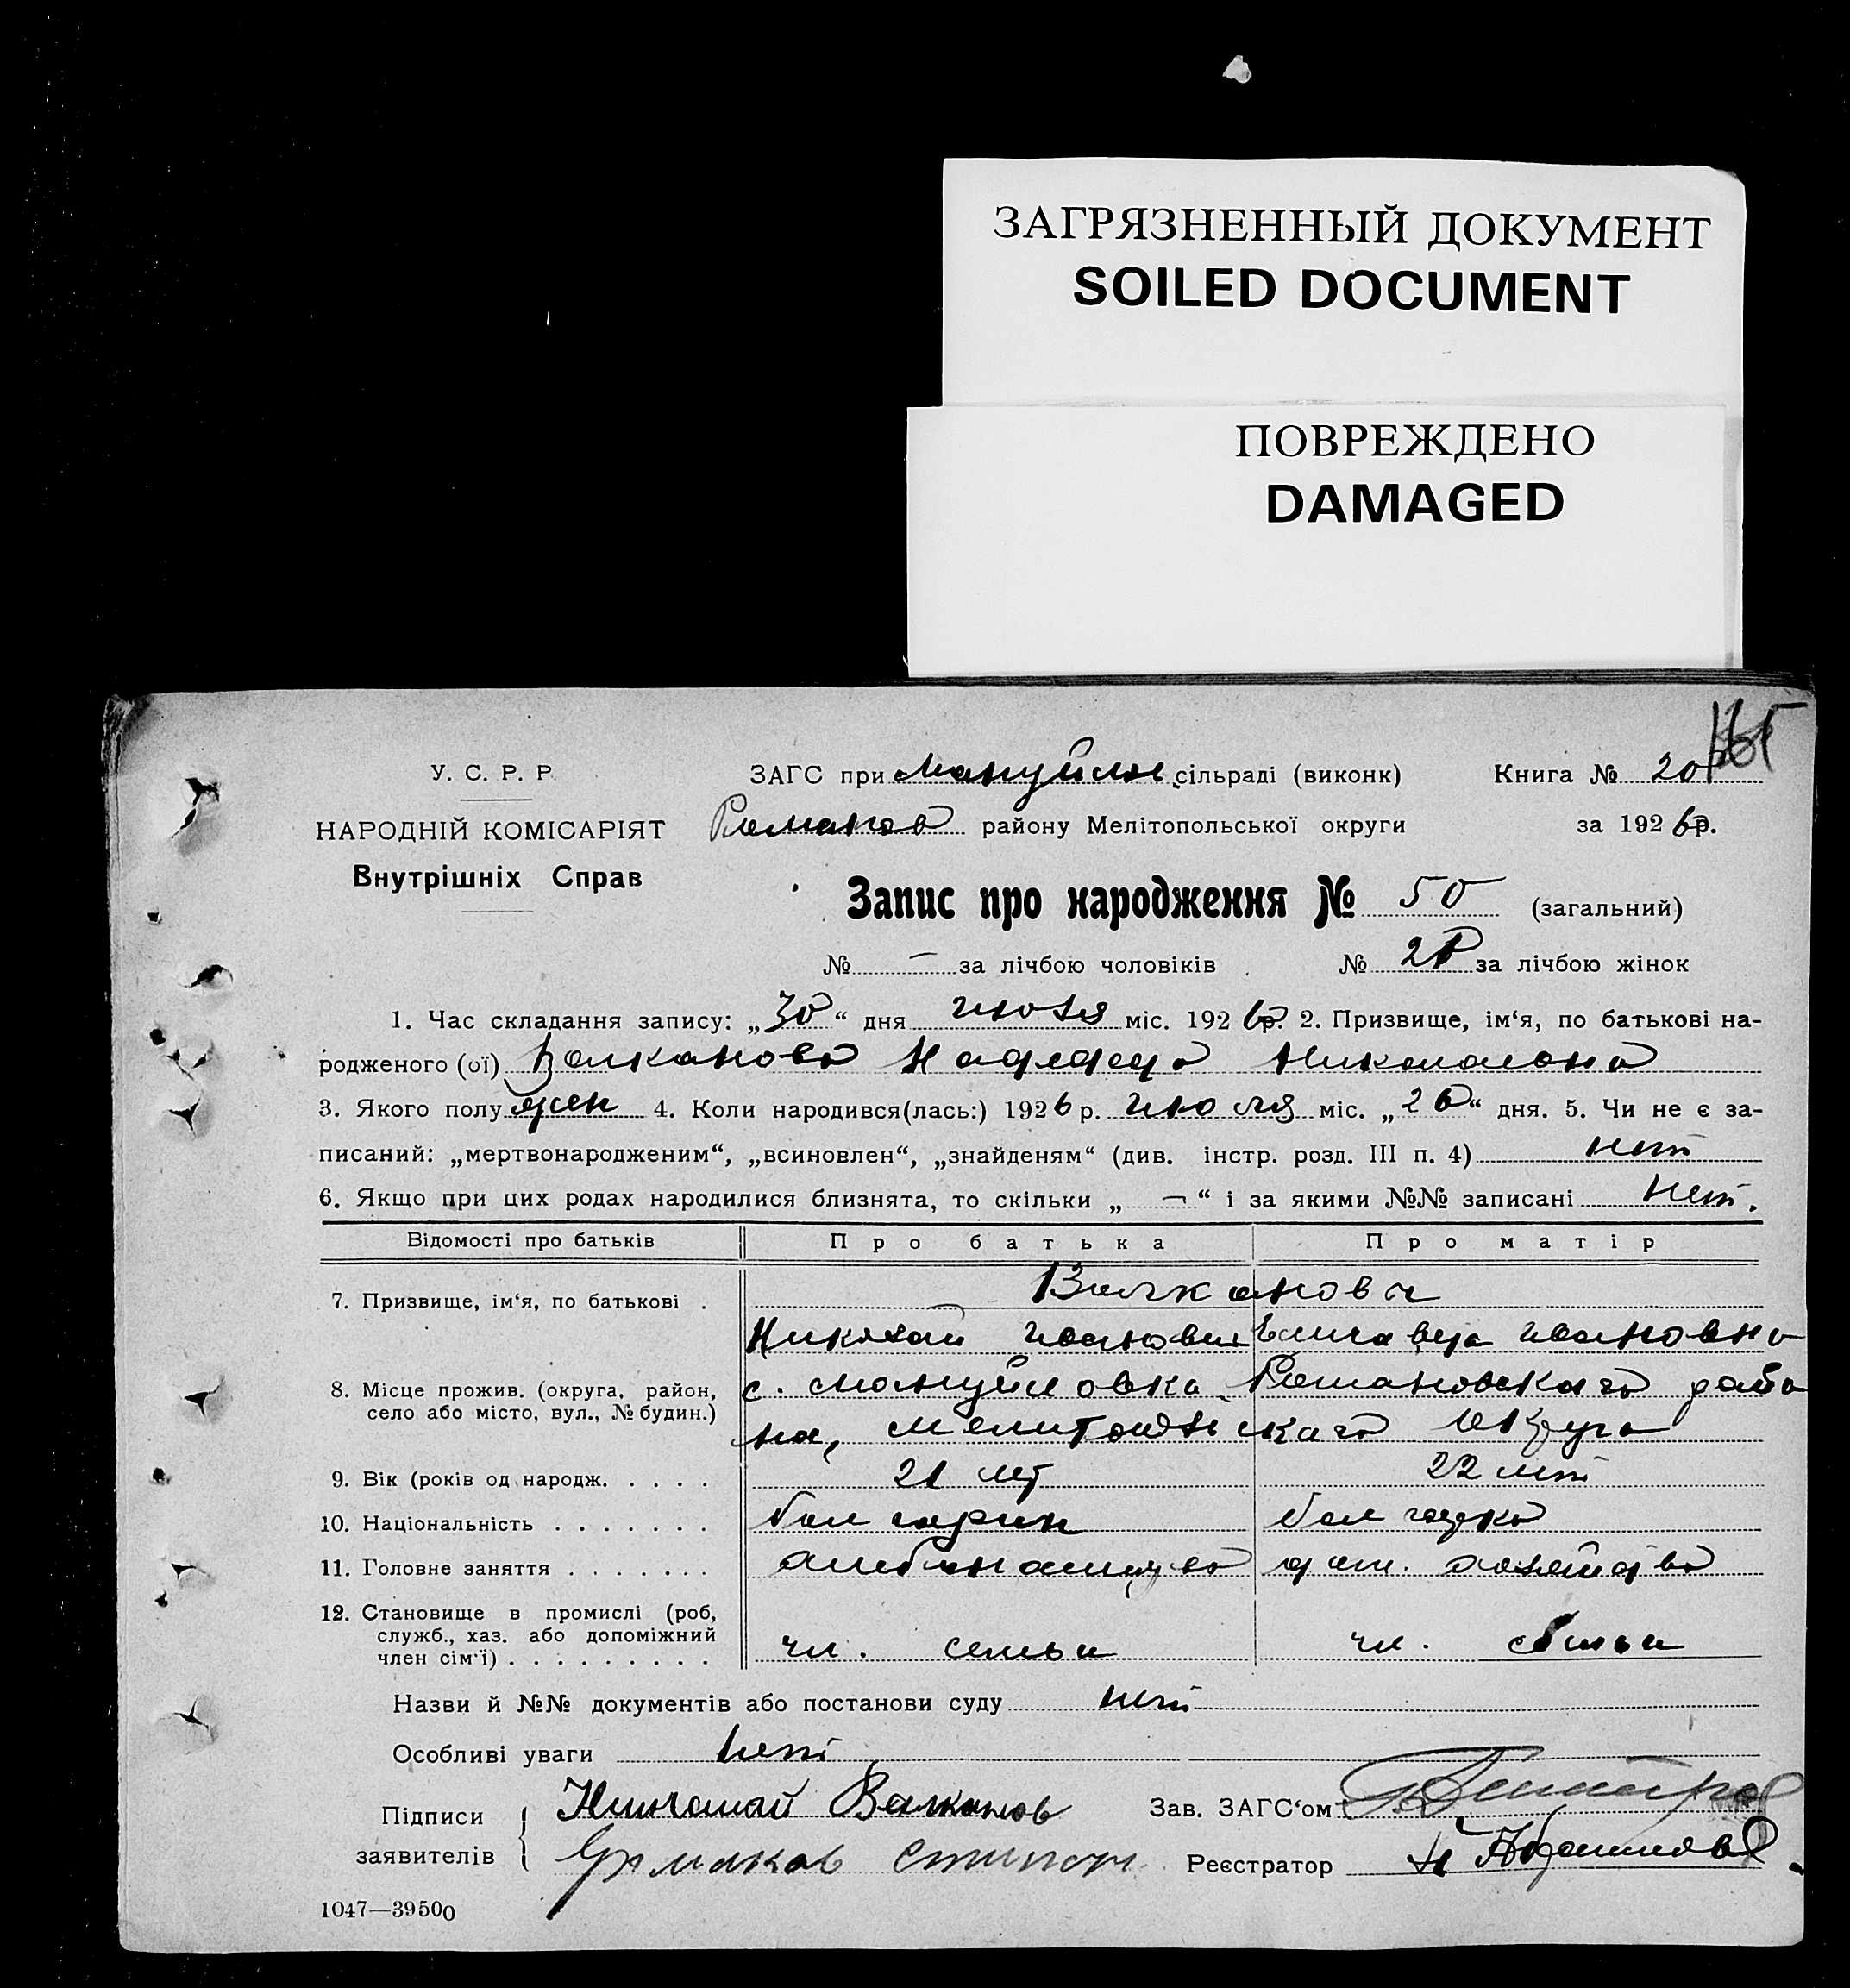 ЗАГРЯЗНЕННЫЙ ДОКУМЕНТ
SOILED DOCUMENT
ПОВРЕЖДЕНО
DAMAGED
У. С. Р. Р. ЗАГС при Мануйлов. сільраді (виконк) Книга № 20
НАРОДНІЙ КОМІСАРІЯТ Романов району Мелітопольської округи за 1926 р.
Внутрішніх Справ
Запис про народження № 50 (загальний)
№ — за лічбою чоловіків № за лічбою жінок
1. Час складання запису: „30“ дня июля міс. 1926 р. 2. Призвище, ім‘я, по батькові на-
родженого (ої) Волканова Надежда Николаевна
3. Якого полу жен 4. Коли народився(лась:) 1926 р. июля міс. „26“ дня. 5. Чи не є за-
писаний: „мертвонародженим“, „всиновлен“, „знайденям“ (див. інстр. розд. III п. 4) нет
6. Якщо при цих родах народилися близнята, то скільки „ — “ і за якими №№ записані нет.
Відомості про батьків Про батька Про матір
7. Призвище, ім‘я, по батькові . Волкановы
Николай Иванович Елисавета Ивановна
8. Місце прожив. (округа, район, село або місто, вул., № будин.) с. Мануйловка Романовскаго райо
на, Мелитопольскаго Округа
9. Вік (років од народж. . . . . 21 лет 22 лет
10. Національність . . . . . . . болгарин болгарка
11. Головне заняття . . . . . . . хлебопашество дом. хозяйство
12. Становище в промислі (роб,
служб., хаз. або допоміжний
член сім‘ї) . . . . . . . . . чл. семьи чл. семьи
Назви й №№ документів або постанови суду нет
Особливі уваги нет
Підписи Николай Волканов Зав. ЗАГС‘ом Димитров
заявителів Степан Реєстратор
1047—39500